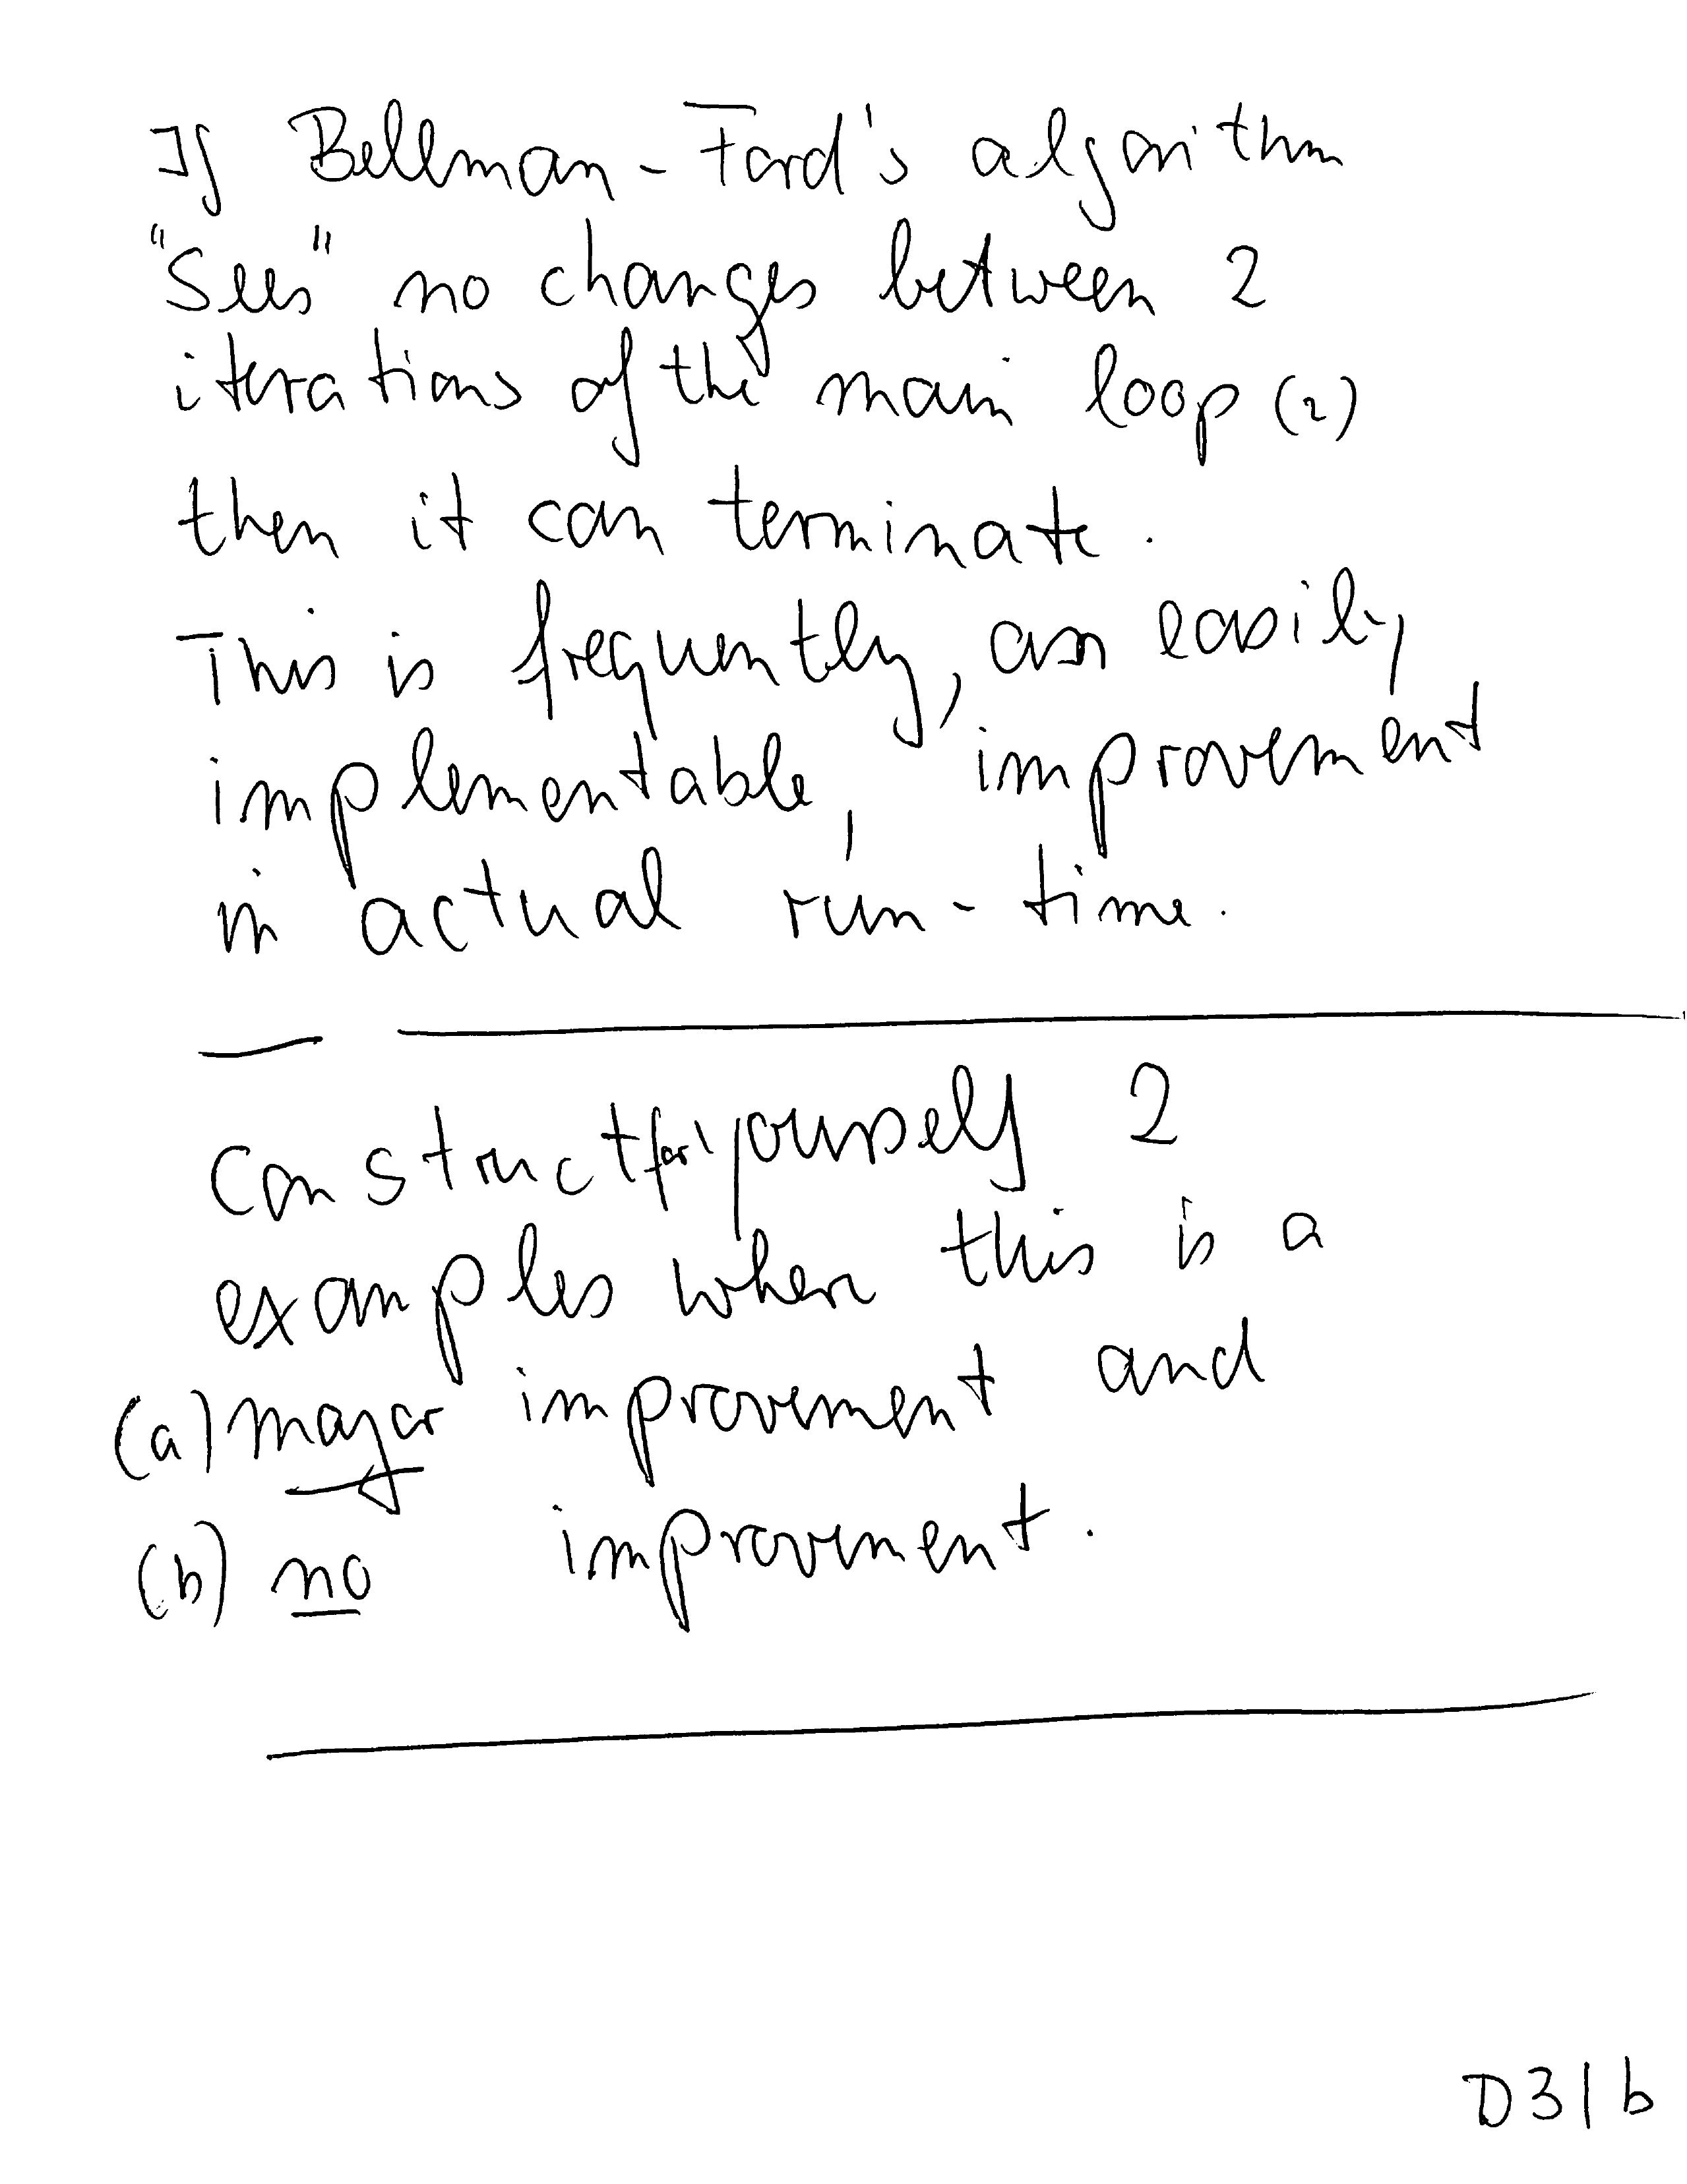 If Bellman-Ford's algorithm
"sees" no changes between 2
iterations of the main loop (2)
then it can terminate.
This is frequently, an easily
implementable, improvement
in actual run-time.
Construct for yourself 2
examples where this is a
(a) major improvement and
(b) no improvement.
D31b